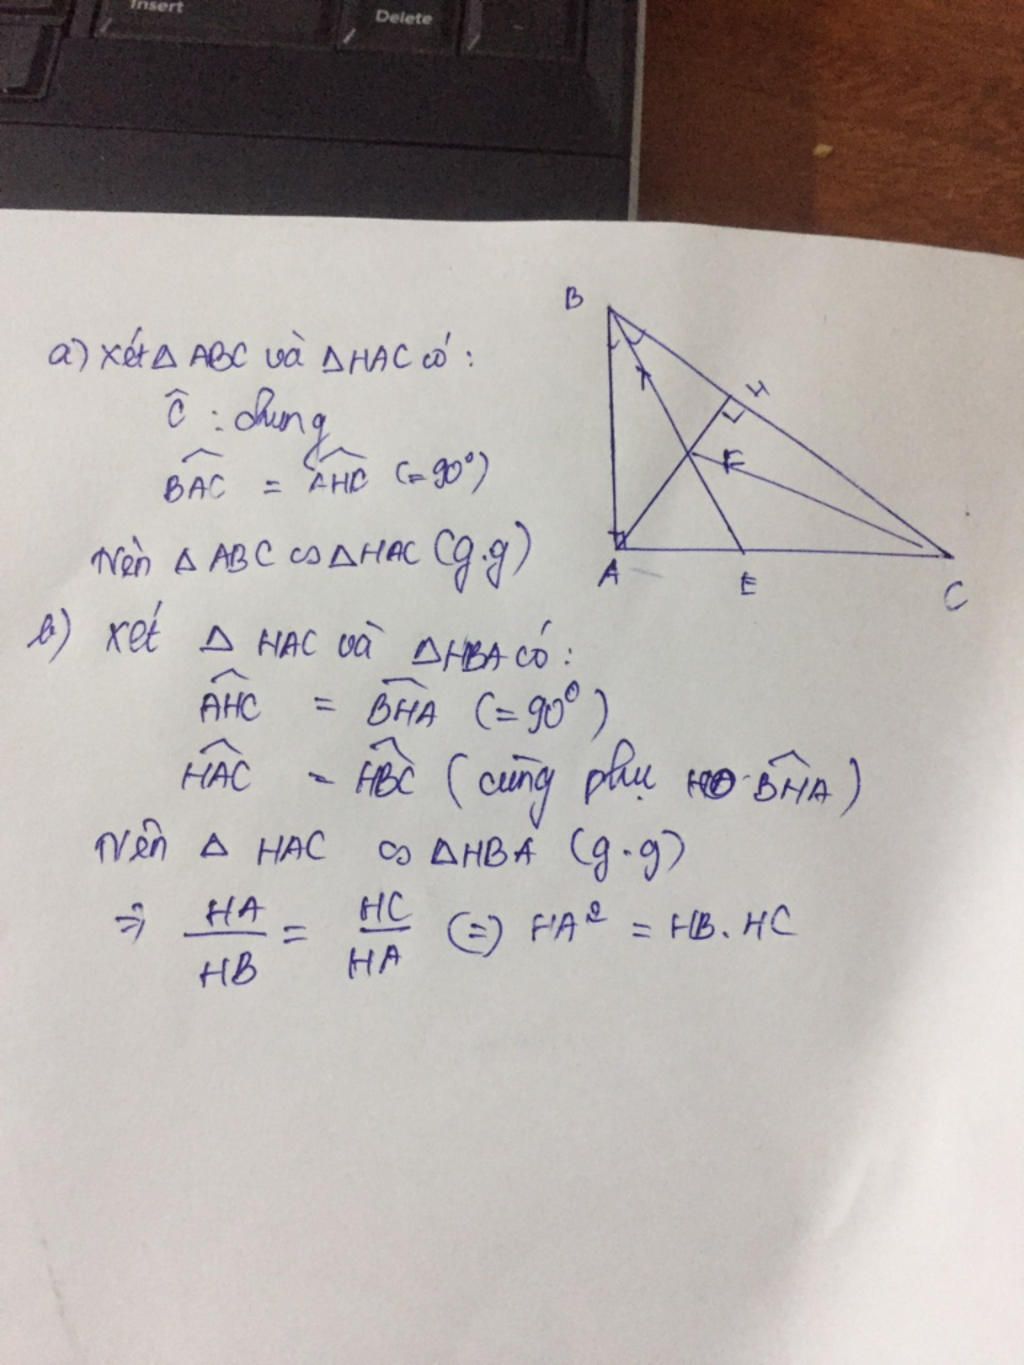 Insert
Delete
B
H
F
A
E
C
a) Xét Δ ABC và Δ HAC có :
Ĉ : chung
BAC = AHC (= 90°)
Nên Δ ABC ∽ Δ HAC (g.g)
b) Xét Δ HAC và Δ HBA có :
AHC = BHA (= 90°)
HAC = HBC ( cùng phụ BHA )
Nên Δ HAC ∽ Δ HBA (g.g)
⇒ HA/HB = HC/HA (=) HA² = HB. HC